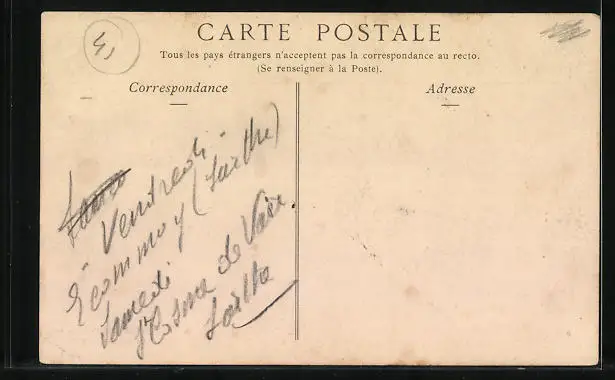 4
CARTE POSTALE
Tous les pays étrangers n'acceptent pas la correspondance au recto.
(Se renseigner à la Poste).
Correspondance
Adresse
Vendredi
Ecommoy (Sarthe)
Samedi
St Cosme de Vair
Sarthe